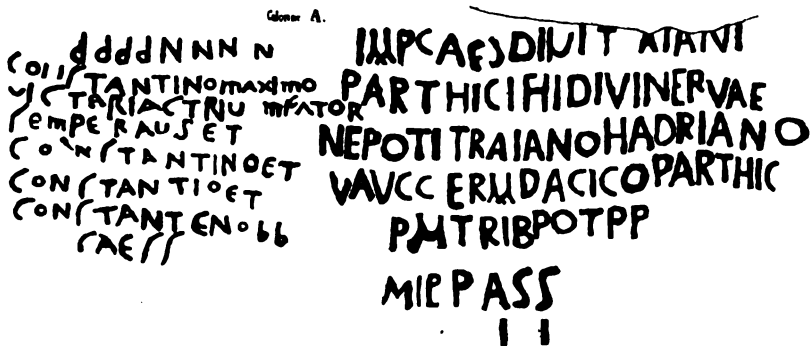 Colonne A.
ddddNNN N
CONS
TANTINOmaximo
VICTARIACTRIUmFATOR
SemPERAUSET
CONSTANTINOET
CONSTANTIOET
CONSTANTENObb
CAESS
IMPCAESDIUIT RAIANI
PARTHICIFIIDIVINERVAE
NEPOTITRAIANOHADRIANO
VAVCCERMDACICOPARTHIC
PMTRIBPOTPP
MIEPASS
II